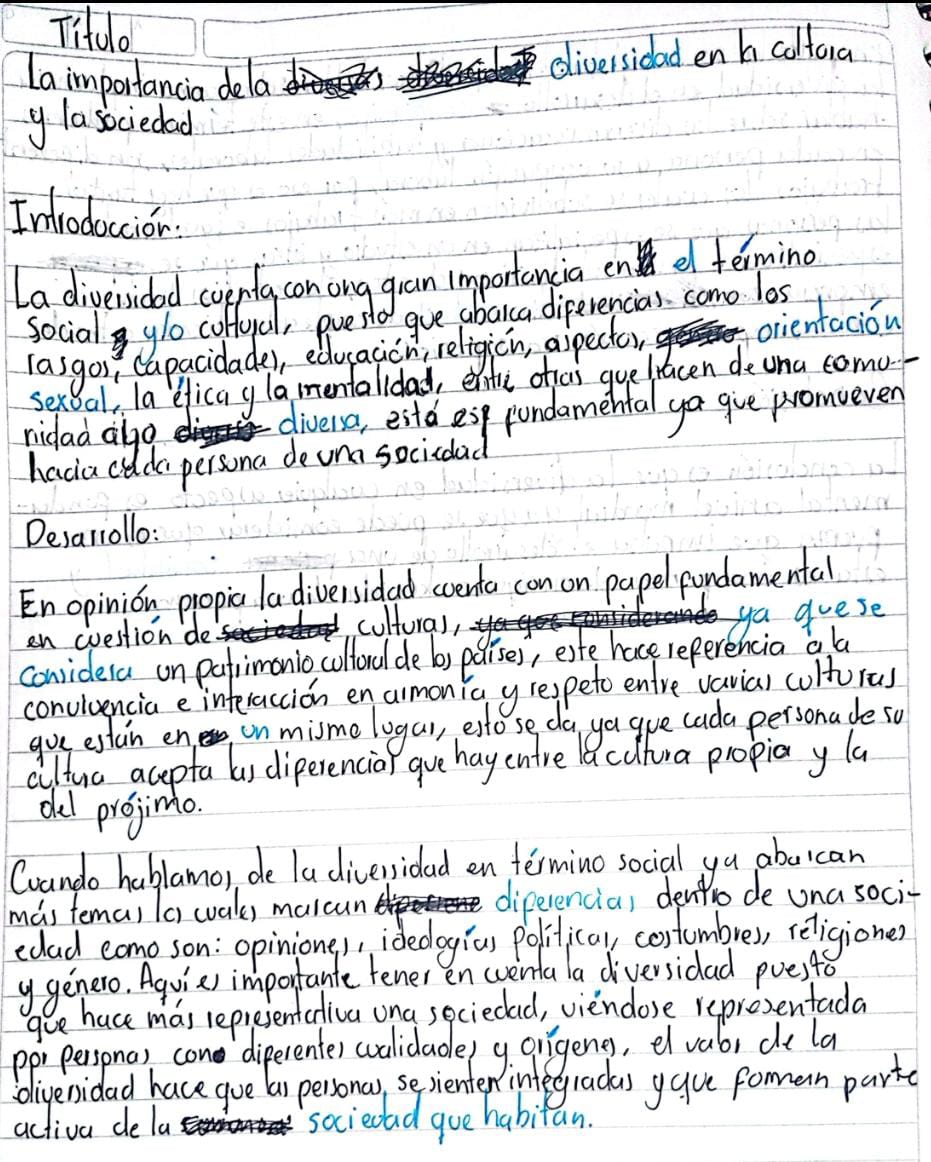 Título
La importancia de la diversidad en la cultura
y la sociedad
Introducción:
La diversidad cuenta con una gran importancia en el término
social y/o cultural, puesto que abarca diferencias como los
rasgos, capacidades, educación, religión, aspectos, orientación
sexual, la ética y la mentalidad, entre otras que hacen de una comu-
nidad algo diversa, está es fundamental ya que promueven
hacia cada persona de una sociedad
Desarrollo:
En opinión propia la diversidad cuenta con un papel fundamental
en cuestión de culturas, ya que se
considera un patrimonio cultural de los países, este hace referencia a la
convivencia e interacción en armonía y respeto entre varias culturas
que están en un mismo lugar, esto se da ya que cada persona de su
cultura acepta las diferencias que hay entre la cultura propia y la
del prójimo.
Cuando hablamos de la diversidad en término social ya abarcan
más temas los cuales marcan diferencias dentro de una soci-
edad como son: opiniones, ideologías políticas, costumbres, religiones
y género. Aquí es importante tener en cuenta la diversidad puesto
que hace más representativa una sociedad, viéndose representada
por personas con diferentes cualidades y orígenes, el valor de la
diversidad hace que las personas se sienten integradas y que formen parte
activa de la sociedad que habitan.